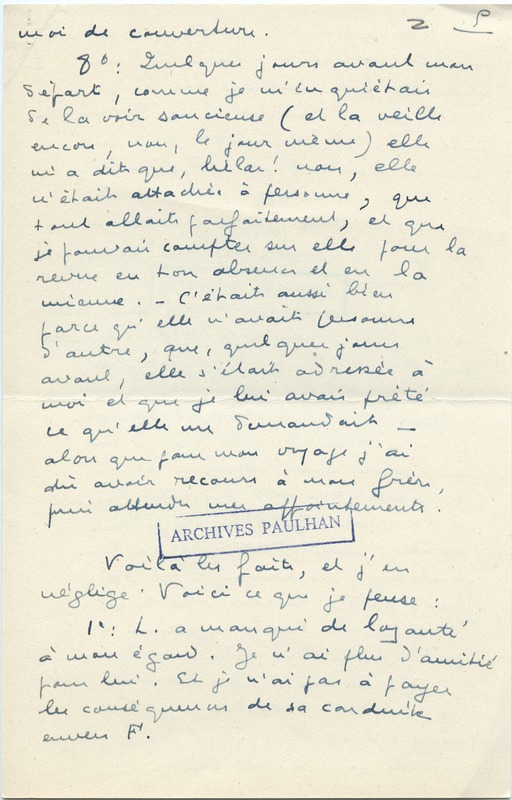 2 P
moi de couverture.
8°: Quelques jours avant mon
départ, comme je m'inquiétais
de la voir soucieuse (et la veille
encore, non, le jour même) elle
m'a dit que, hélas! non, elle
n'était attachée à personne, que
tout allait parfaitement, et que
je pouvais compter sur elle pour la
revue en ton absence et en la
mienne. – C'était aussi bien
parce qu'elle n'avait personne
d'autre, que, quelques jours
avant, elle s'était adressée à
moi et que je lui avais prêté
ce qu'elle me demandait –
alors que pour mon voyage j'ai
dû avoir recours à mon frère,
puis attendre mes appointements.
ARCHIVES PAULHAN
Voilà les faits, et j'en
néglige. Voici ce que je pense :
1°: L. a manqué de loyauté
à mon égard. Je n'ai plus d'amitié
pour lui. Et je n'ai pas à payer
les conséquences de sa conduite
envers F.